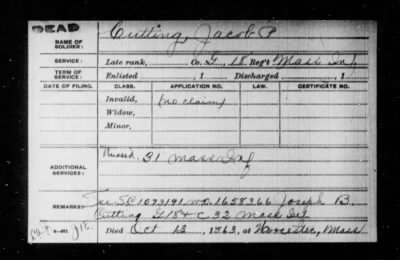 DEAD
NAME OF SOLDIER: Cutting, Jacob P
SERVICE: Late rank, Co. G, 18 Reg't Mass Inf
TERM OF SERVICE: Enlisted , 1 Discharged , 1
DATE OF FILING. CLASS. APPLICATION NO. LAW. CERTIFICATE NO.
Invalid, (no claim)
Widow,
Minor,
ADDITIONAL SERVICES: 31 Mass Inf
REMARKS: See SC 1073191 W.O. 1658366 Joseph B.
Cutting G 18 & C 32 Mass Inf
Died Oct 12, 1863, at Worcester, Mass